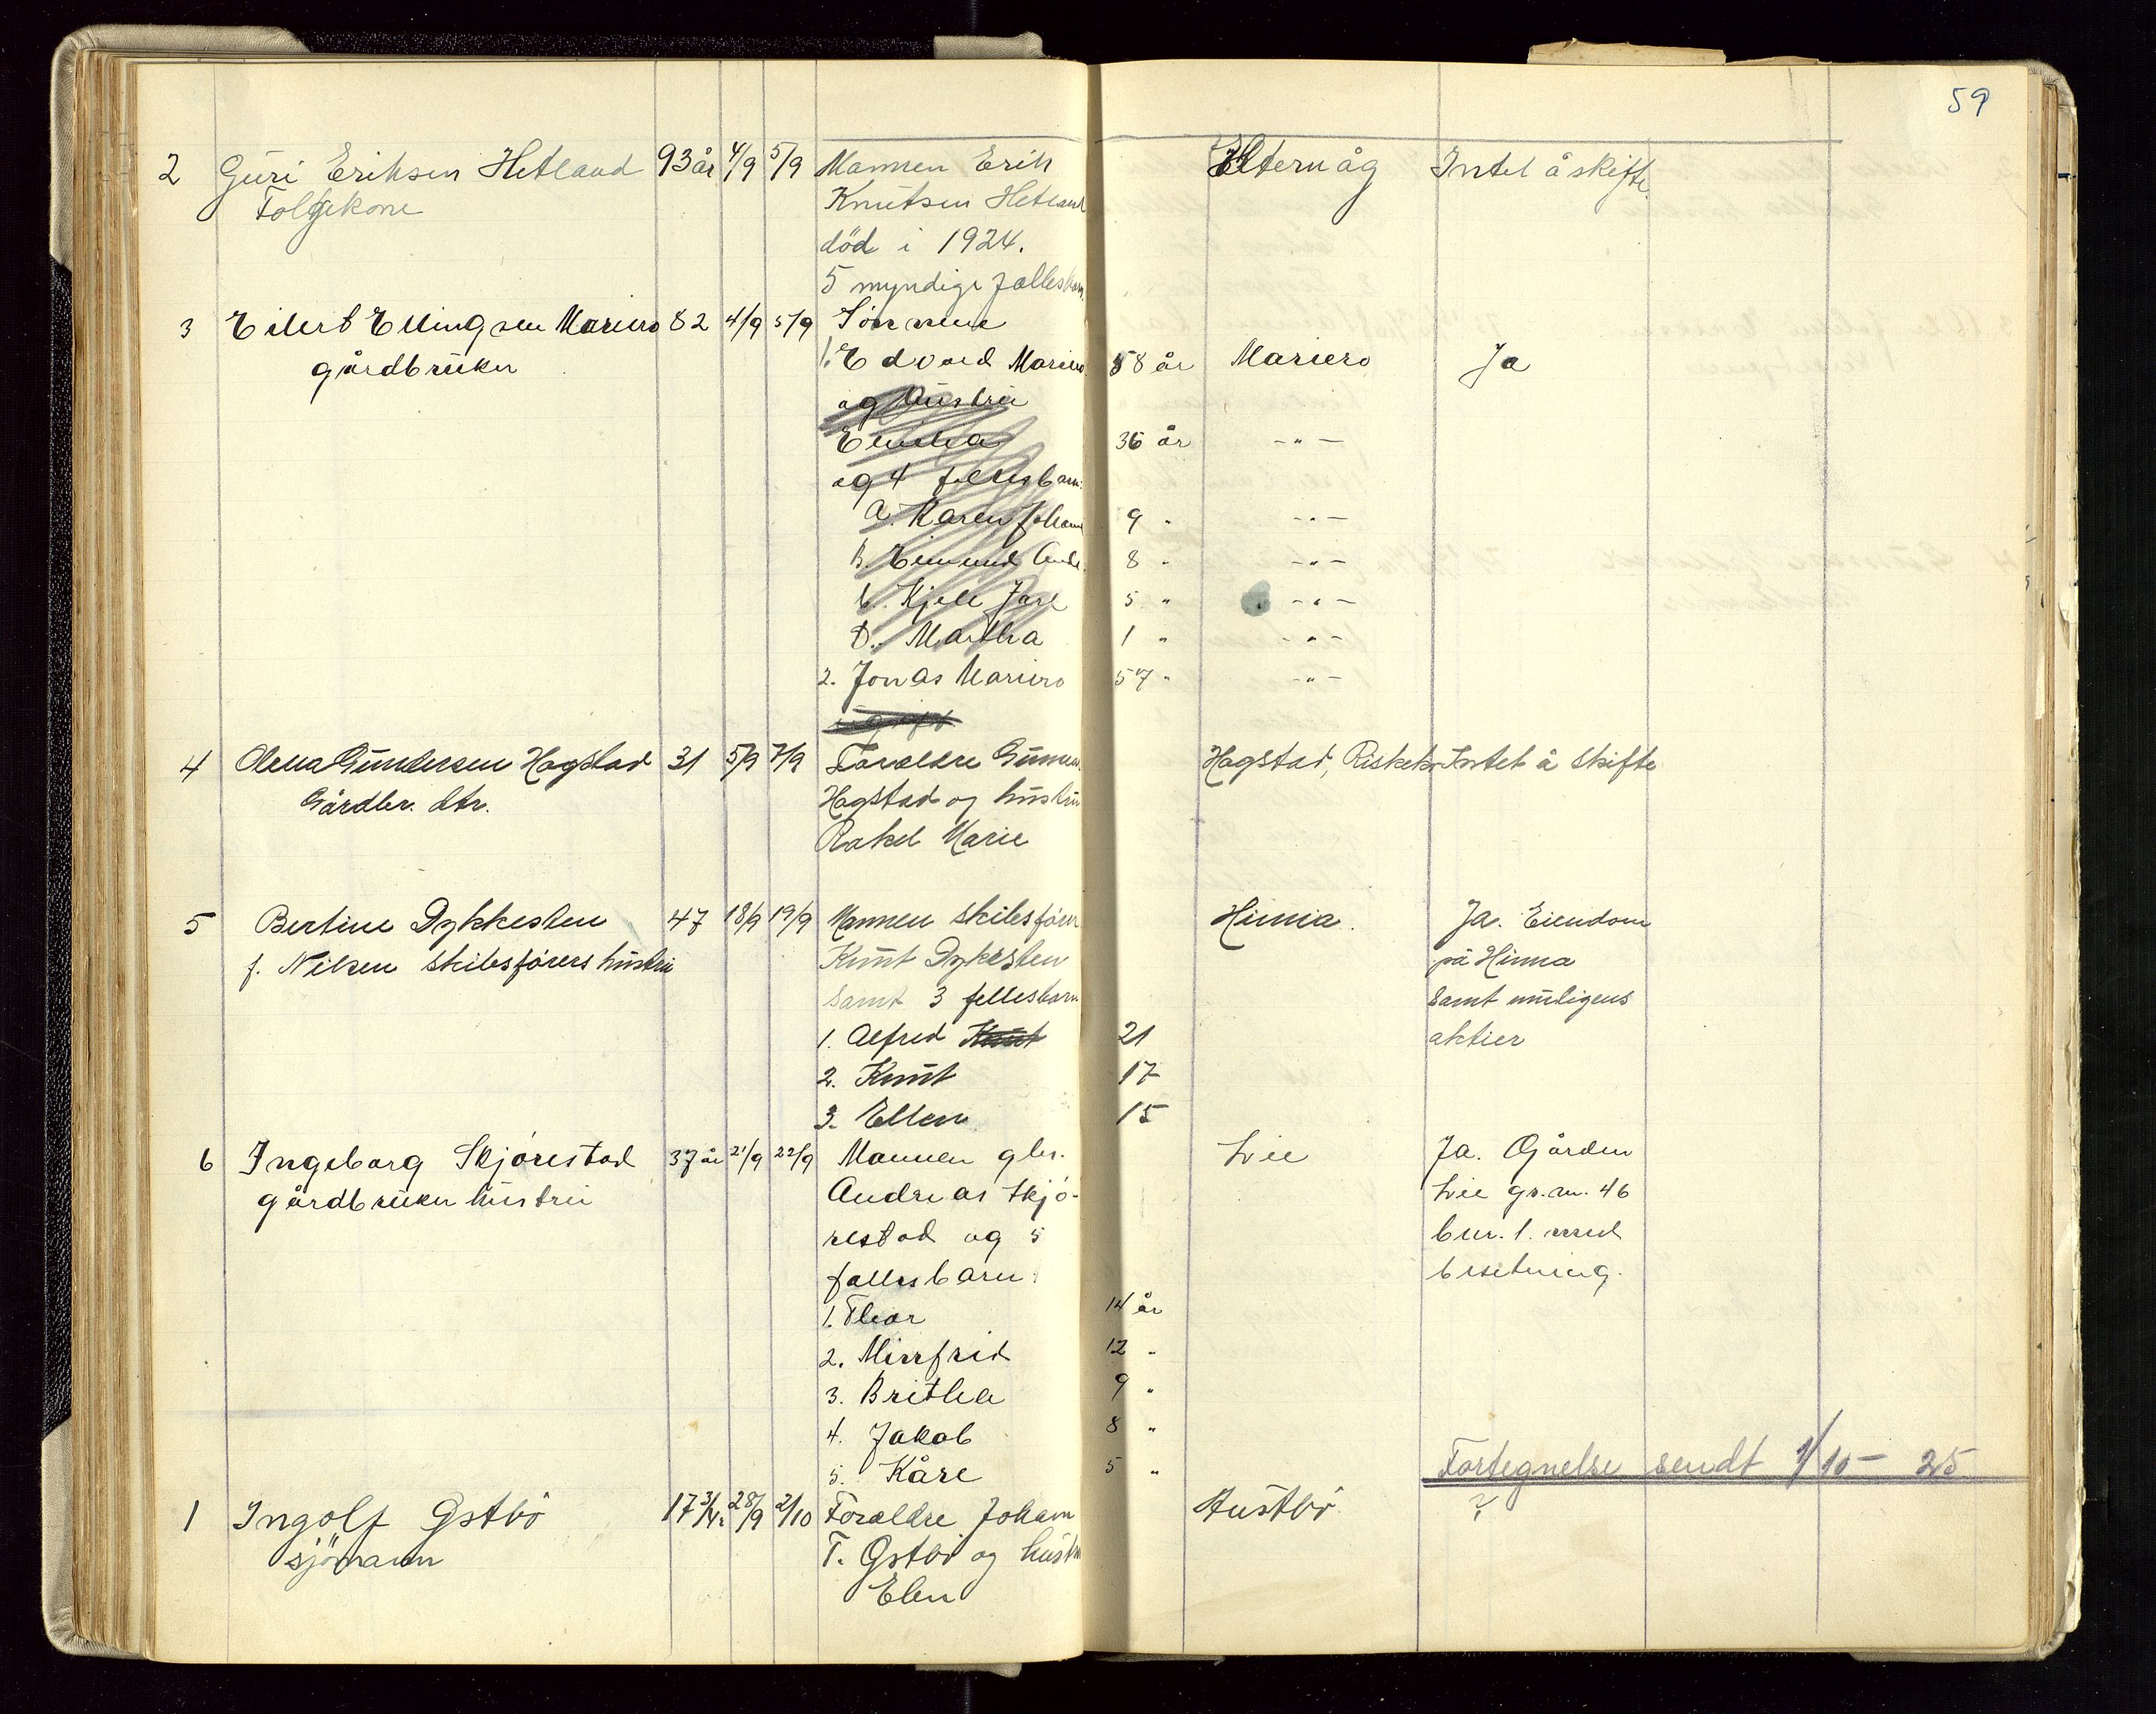 59
2 Guri Eriksen Hetland 93 år 4/9 5/9 Mannen Erik Intet å skifte
Folgekone Knutsen Hetland
död i 1924.
5 myndige fællesbarn.
3 Eilert Ellingsen Mariero 82 4/9 5/9 Sönnene
gårdbruker 1. Edvard Mariero 58 år Mariero Ja
og hustru
36 år -"-
og 4 fellesbarn:
a. Karen Johan 9 " -"-
B. 8 " -"-
C. Kjell 5 " -"-
D. Martha 1 " -"-
2. Jonas Mariero 57 " -"-
ugift
4 Olena Gundersen Hogstad 31 5/9 7/9 Forældre Gunnar Hogstad, Riskekv. Intet å skifte
Gårdbr. dtr. Hogstad og hustru
Rakel Marie
5 Bertine Dykkesten 47 18/9 19/9 Mannen skibsförer Hinna. Ja. Eiendom
f. Nilsen skibsförers hustru Knut Dykesten på Hinna
samt 3 fellesbarn samt muligens
1. Alfred Knut 21 aktier
2. Knut 17
3. Ellen 15
6 Ingeborg Skjörestad 37 år 21/9 22/9 Mannen gbr. Lie Ja. Gården
gårdbruker hustru Andreas Skjö- Lie gr. nr. 46
restad og 5 bnr. 1. med
fællesbarn: besetning.
1. Thor 14 år
2. Minfrid 12 "
3. Brithe 9 "
4. Jakob 8 "
5. Kåre 5 " Fortegnelse sendt 1/10 - 25
1 Ingolf Østbö 17 3/4 28/9 2/10 Forældre Johan Austbö ?
sjömann T. Østbö og hustru
Elen